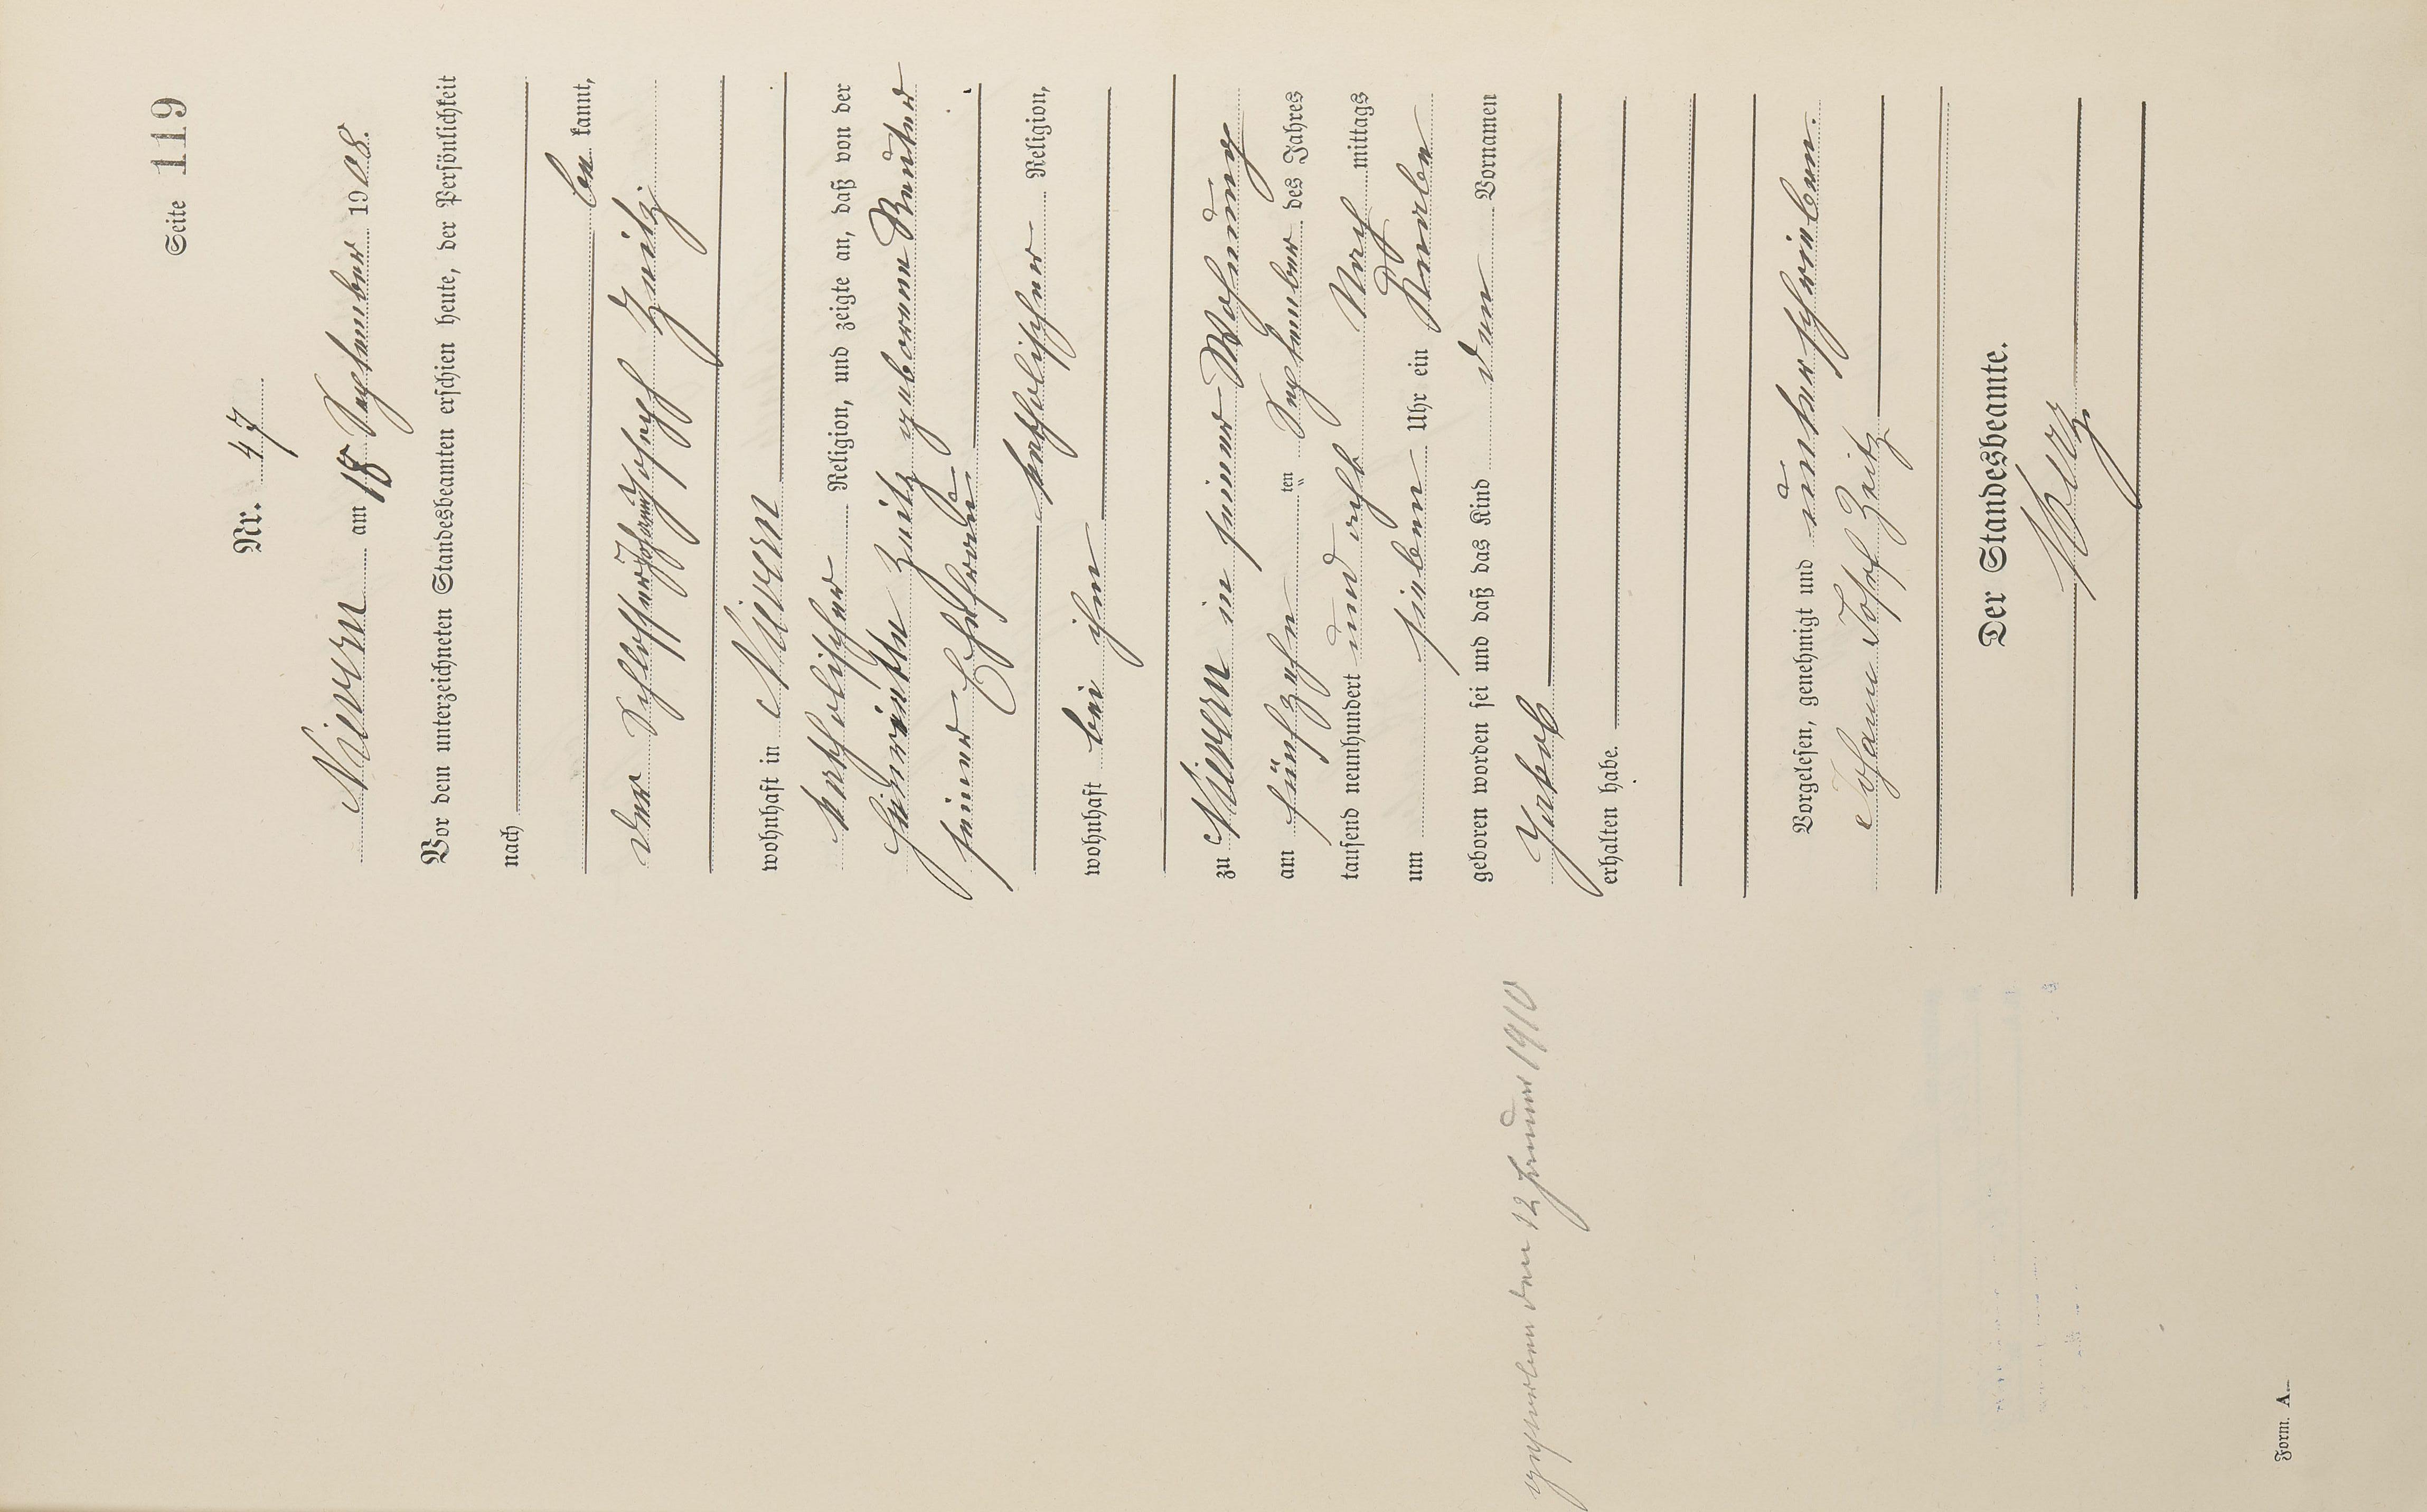 Seite 119
Nr. 47
Nievern am 18 September 1908.
Vor dem unterzeichneten Standesbeamten erschien heute, der Persönlichkeit
nach
be kannt,
der Schlosser Johann Joseph Zeitz
wohnhaft in Nievern
katholischer Religion, und zeigte an, daß von der
Henriette Zeitz geborene Reuter
seiner Ehefrau
katholischer Religion,
wohnhaft bei ihm
zu Nievern in seiner Wohnung
am fünfzehn ten September des Jahres
tausend neunhundert und acht Nach mittags
um sieben Uhr ein Knabe
geboren worden sei und daß das Kind den Vornamen
Jakob
erhalten habe.
Vorgelesen, genehmigt und unterschrieben.
Johann Josef Zeitz
Der Standesbeamte.
gestorben den 12 Januar 1910
Form. A.